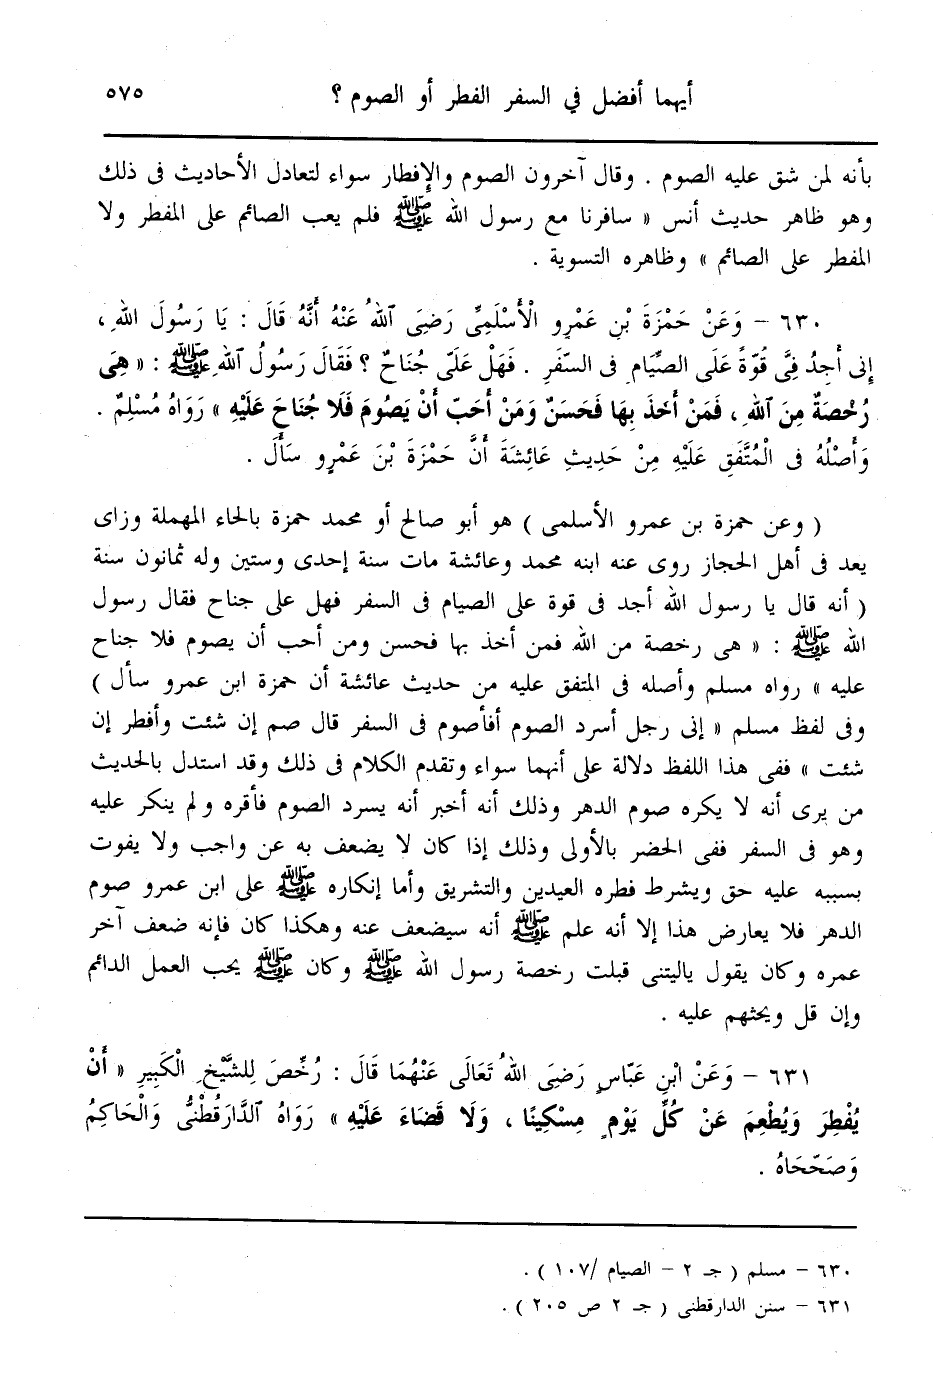 أيهما أفضل في السفر الفطر أو الصوم ؟ ٥٧٥
بأنه لمن شق عليه الصوم . وقال آخرون الصوم والإفطار سواء لتعادل الأحاديث فى ذلك
وهو ظاهر حديث أنس « سافرنا مع رسول الله ﷺ فلم يعب الصائم على المفطر ولا
المفطر على الصائم » وظاهره التسوية .
٦٣٠ – وَعَنْ حَمْزَةَ بْنِ عَمْرٍو الْأَسْلَمِىِّ رَضِىَ اللهُ عَنْهُ أَنَّهُ قَالَ : يَا رَسُولَ اللهِ ،
إِنى أَجِدُ فِىَّ قُوَّةً عَلَى الصِّيَامِ فِى السَّفَرِ . فَهَلْ عَلَىَّ جُنَاحٌ ؟ فَقَالَ رَسُولُ اللهِ ﷺ : « هِىَ
رُخْصَةٌ مِنَ اللهِ ، فَمَنْ أَخَذَ بِهَا فَحَسَنٌ وَمَنْ أَحَبَّ أَنْ يَصُومَ فَلَا جُنَاحَ عَلَيْهِ » رَوَاهُ مُسْلِمٌ .
وَأَصْلُهُ فى الْمُتَّفَقِ عَلَيْهِ مِنْ حَدِيثِ عَائِشَةَ أَنَّ حَمْزَةَ بْنَ عَمْرٍو سَأَلَ .
( وعن حمزة بن عمرو الأسلمى ) هو أبو صالح أو محمد حمزة بالحاء المهملة وزاى
يعد فى أهل الحجاز روى عنه ابنه محمد وعائشة مات سنة إحدى وستين وله ثمانون سنة
( أنه قال يا رسول الله أجد فى قوة على الصيام فى السفر فهل على جناح فقال رسول
الله ﷺ : « هى رخصة من الله فمن أخذ بها فحسن ومن أحب أن يصوم فلا جناح
عليه » رواه مسلم وأصله فى المتفق عليه من حديث عائشة أن حمزة ابن عمرو سأل )
وفى لفظ مسلم « إنى رجل أسرد الصوم أفأصوم فى السفر قال صم إن شئت وأفطر إن
شئت » ففى هذا اللفظ دلالة على أنهما سواء وتقدم الكلام فى ذلك وقد استدل بالحديث
من يرى أنه لا يكره صوم الدهر وذلك أنه أخبر أنه يسرد الصوم فأقره ولم ينكر عليه
وهو فى السفر ففى الحضر بالأولى وذلك إذا كان لا يضعف به عن واجب ولا يفوت
بسببه عليه حق ويشرط فطره العيدين والتشريق وأما إنكاره ﷺ على ابن عمرو صوم
الدهر فلا يعارض هذا إلا أنه علم ﷺ أنه سيضعف عنه وهكذا كان فإنه ضعف آخر
عمره وكان يقول ياليتنى قبلت رخصة رسول الله ﷺ وكان ﷺ يحب العمل الدائم
وإن قل ويحثهم عليه .
٦٣١ – وَعَنْ ابْنِ عَبَّاسٍ رَضِىَ اللهُ تَعَالَى عَنْهُمَا قَالَ : رُخِّصَ لِلشَّيْخِ الْكَبِيرِ « أَنْ
يُفْطِرَ وَيُطْعِمَ عَنْ كُلِّ يَوْمٍ مِسْكِينًا ، وَلَا قَضَاءَ عَلَيْهِ » رَوَاهُ الدَّارَقُطْنىُّ وَالْحَاكِمُ
وَصَحَّحَاهُ .
٦٣٠ – مسلم ( جـ ٢ – الصيام /١٠٧ ) .
٦٣١ – سنن الدارقطنى ( جـ ٢ ص ٢٠٥ ) .